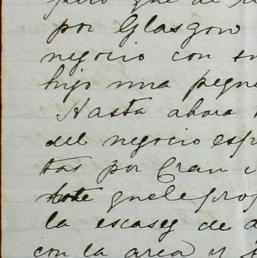 pero que de
por Glasgow
negocio con su
hijo una peque
Hasta ahora
del negocio espe
tas por Cran
que le pro
la escasez de a
con la area y